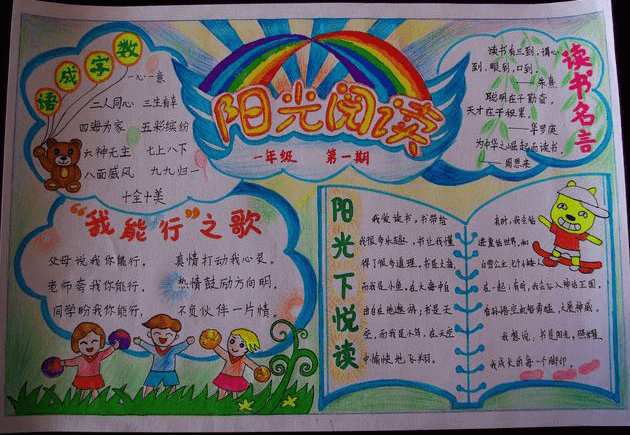 数字成语
一心一意
二人同心 三生有幸
四海为家 五彩缤纷
六神无主 七上八下
八面威风 九九归一
十全十美
阳光阅读
一年级 第一期
读书名言
读书有三到，谓心
到，眼到，口到。
——朱熹
聪明在于勤奋，
天才在于积累。
——华罗庚
为中华之崛起而读书。
——周恩来
“我能行”之歌
父母说我你能行，真情打动我心灵。
老师夸我你能行，热情鼓励方向明。
同学盼我你能行，不负伙伴一片情。
阳光下悦读
我爱读书，书带给
我很多乐趣，书让我懂
得了很多道理。书是大海，
而我是小鱼，在大海中自
由自在地遨游，书是天
空，而我是小鸟，在天空
中愉快地飞翔。
有时，我会钻
进童话世界，和
白雪公主、七个小矮人
在一起；有时，我会
我想说，书是阳光，照耀
我成长的每一个脚印。